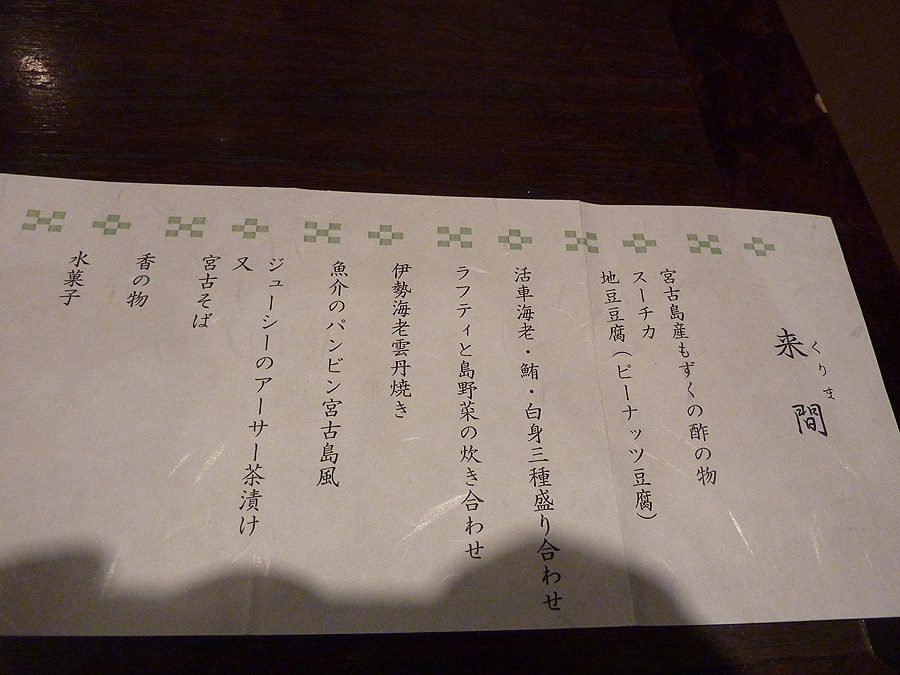 来間
くりま
宮古島産もずくの酢の物
スーチカ
地豆豆腐（ピーナッツ豆腐）
活車海老・鮪・白身三種盛り合わせ
ラフティと島野菜の炊き合わせ
伊勢海老雲丹焼き
魚介のパンビン宮古島風
ジューシーのアーサー茶漬け
又
宮古そば
香の物
水菓子